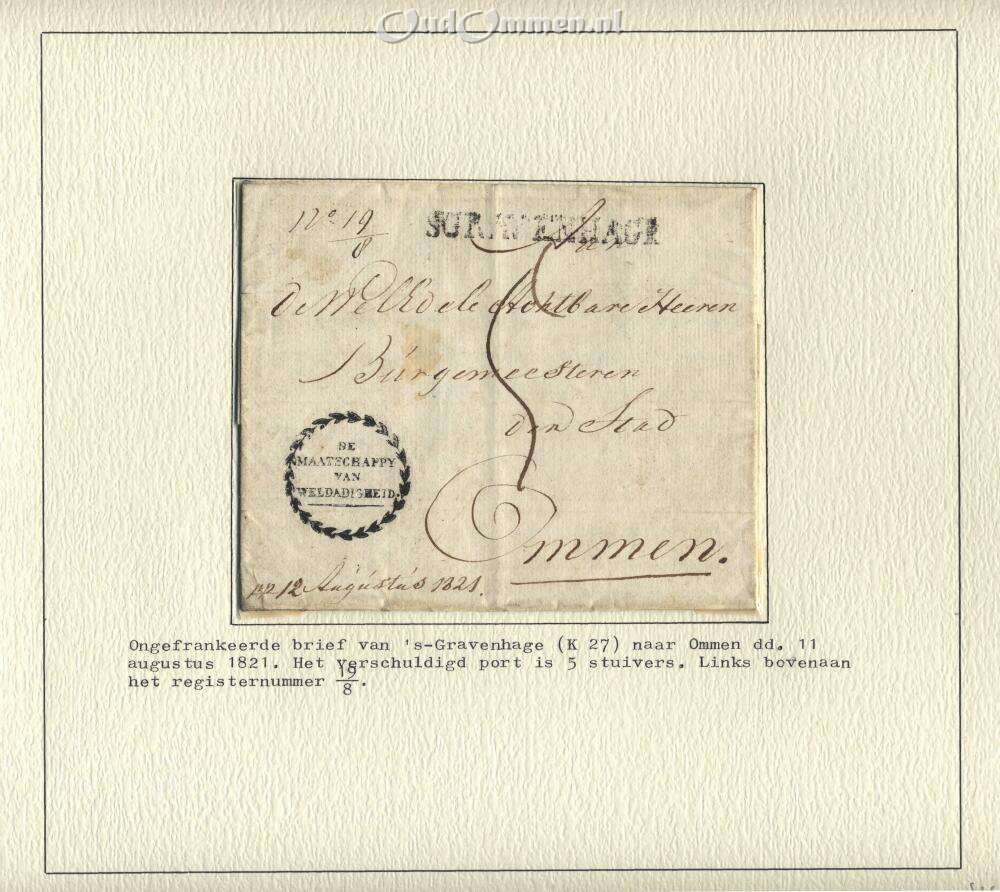 OudOmmen.nl
No 19/8
SGRAVENHAGE
De WelEdele Achtbare Heeren
Búrgemeesteren
der Stad
5
DE
MAATSCHAPPY
VAN
WELDADIGHEID.
Ommen.
12 Augústús 1821.
Ongefrankeerde brief van 's-Gravenhage (K 27) naar Ommen dd. 11
augustus 1821. Het verschuldigd port is 5 stuivers. Links bovenaan
het registernummer 19/8.